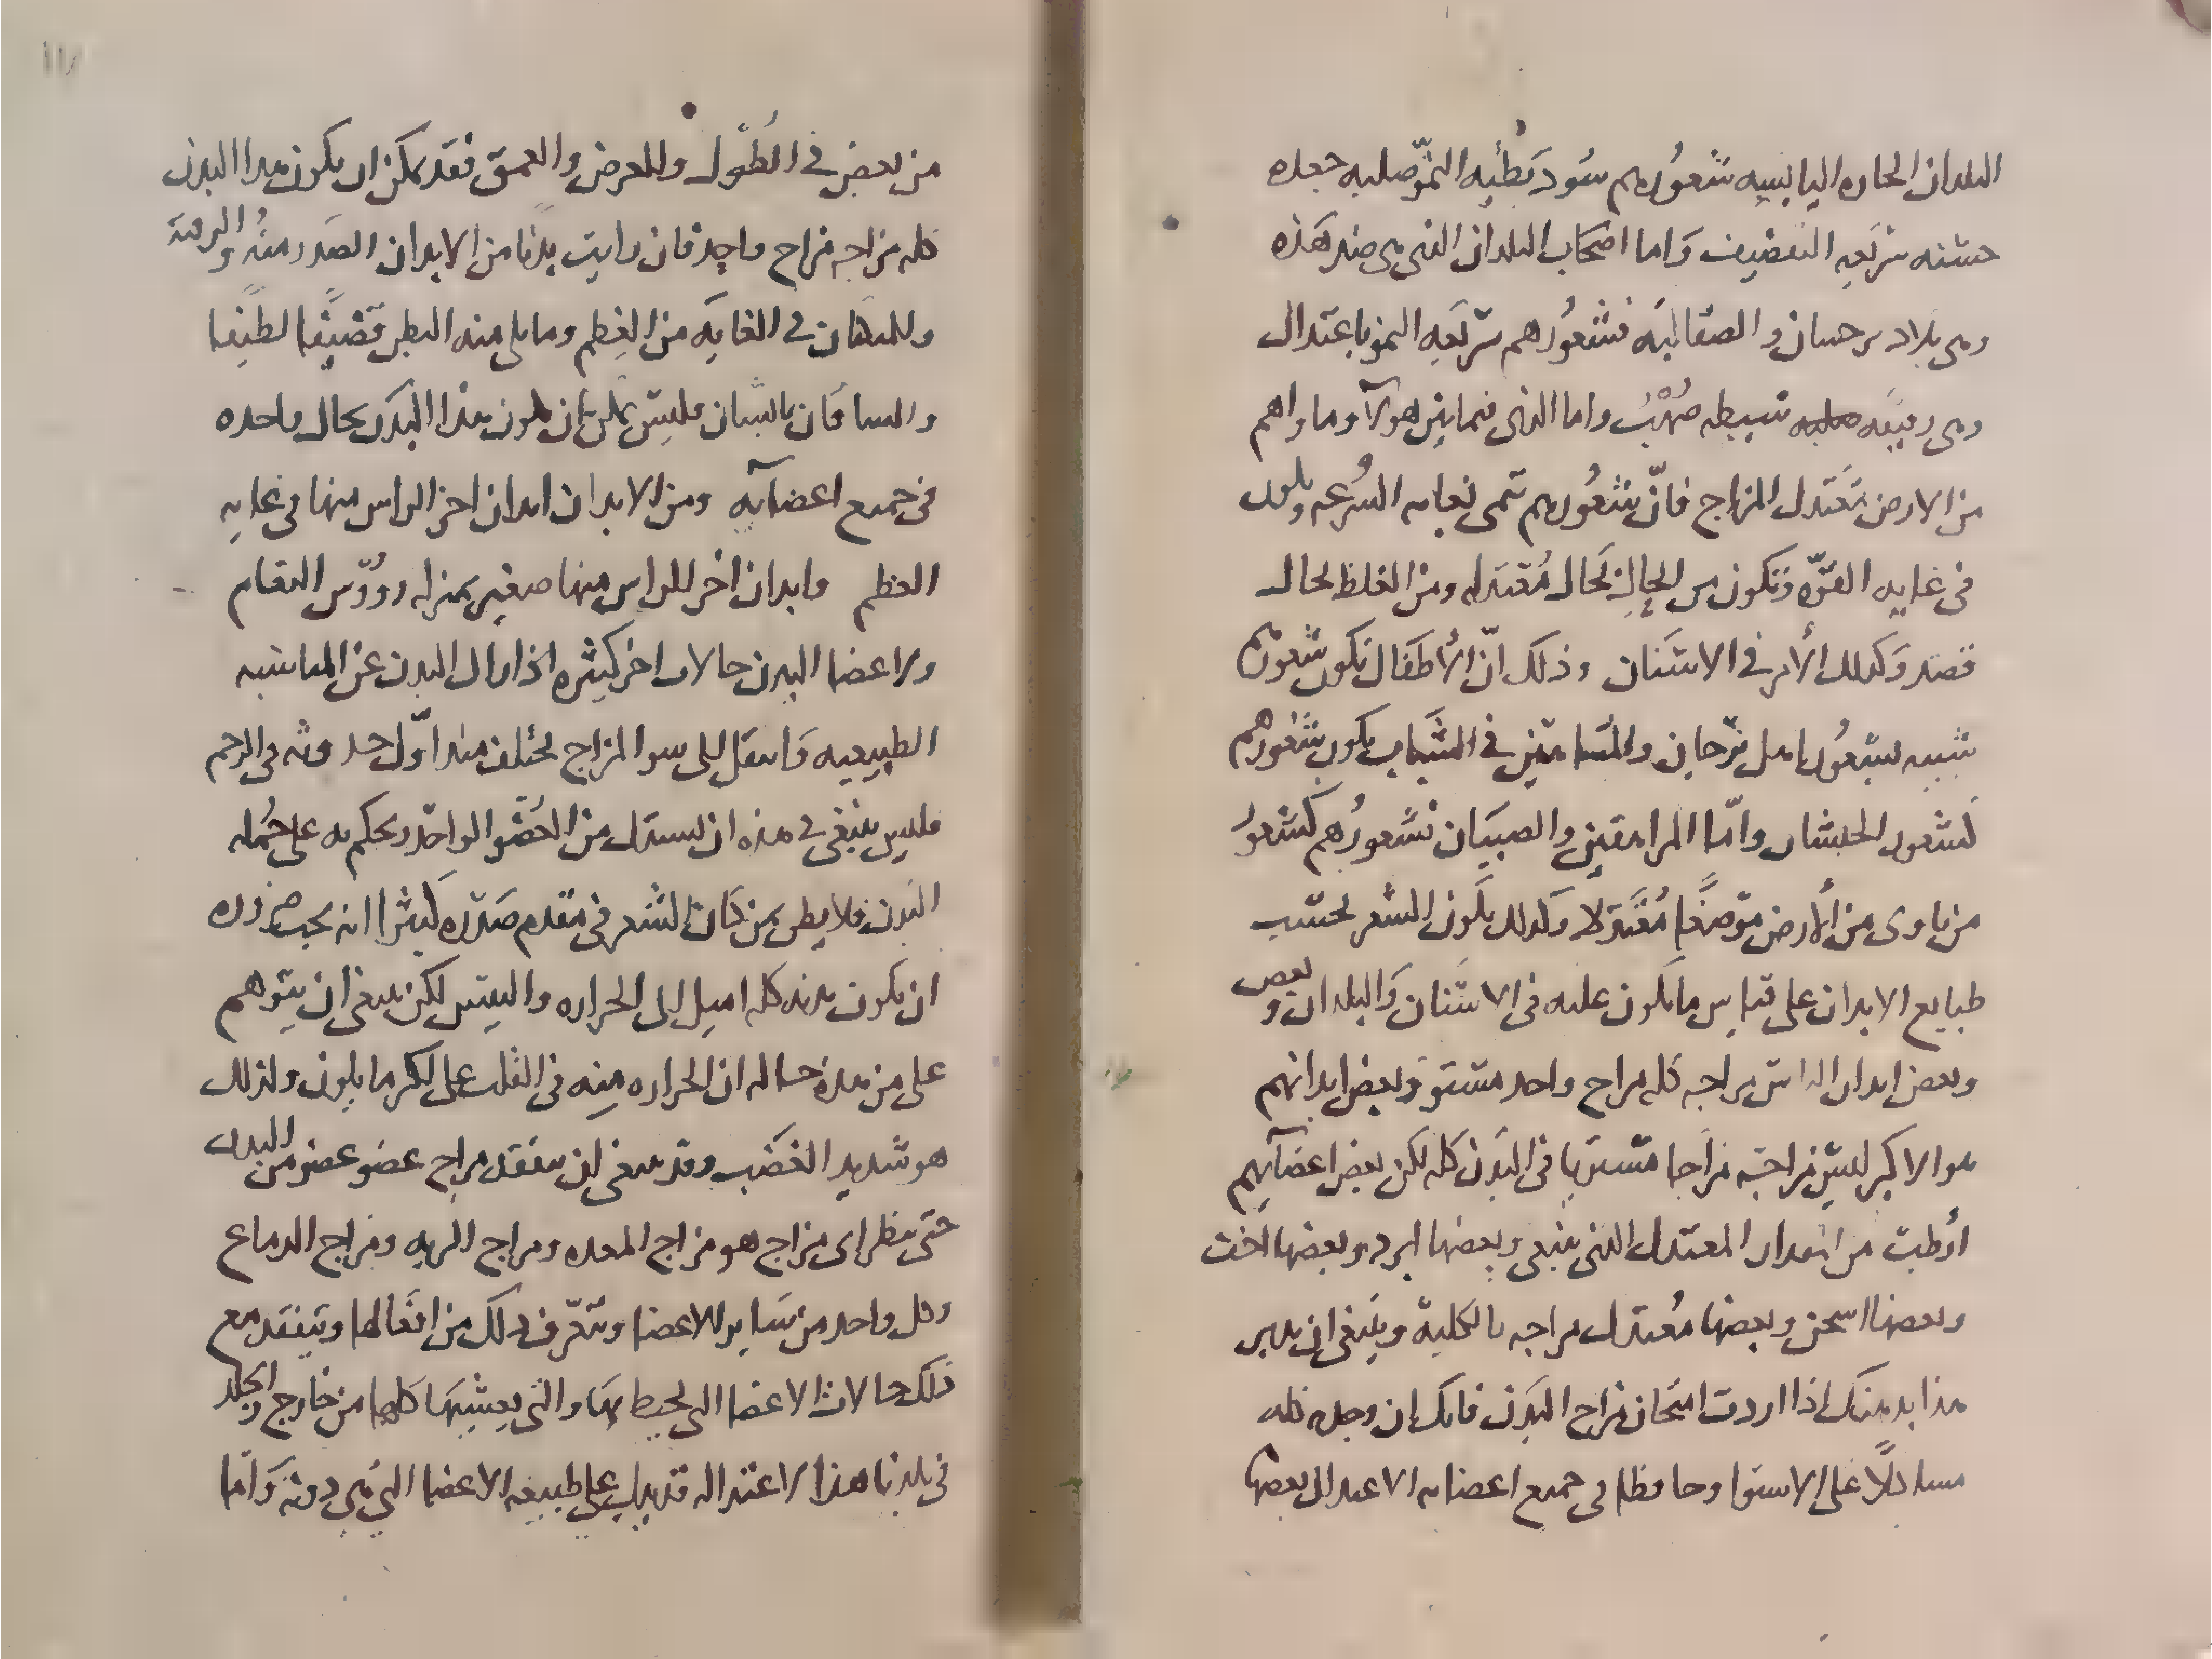 البلدان الحاره اليابسه شعورهم سود بطيه النمو صلبه جعده
خشنه سريعه التقصيف واما اصحاب البلدان التي هي ضد هذه
وهي بلاد برجسان والصقالبه فشعورهم سريعه النمو باعتدال
وهي رقيقه سبطه صهب واما الذي فيما بين هولآ وما واهم
من الارض معتدل المزاج فان شعورهم تنمى بغايه السرعه ويكون
في غايه القوه وتكون من بحال معتدله ومن الغلظ بحال
قصد وكذلك الأمر في الاسنان وذلك ان الأطفال تكون شعورهم
شبيه بشعور اهل برجان والمتناهين في الشباب يكون شعورهم
كشعور الحبشان واما المراهقين والصبيان فشعورهم كشعور
من ياوي من الأرض موضعا معتدلا وكذلك يكون الشعر بحسب
طبايع الابدان على قياس ما يكون عليه في الاسنان والبلدان وبعض
وبعض ابدان الناس مزاجه كله مزاج واحد مستو وبعض ابدانهم
هوالاكبر ليس مزاجه مزاجا مستويا في البدن كله لكن بعض اعضآيهم
أرطب من المقدار المعتدل الذي ينبغي وبعضها ابرد وبعضها اخف
وبعضها اسخن وبعضها معتدل مزاجه بالكليه وينبغي ان يدبر
هذا بد منك اذا اردت امتحان مزاج البدن فانك ان وجدته كله
متشاكلا على الاستوا وحافظا في جميع اعضايه الاعتدال بعضها
من بعض في الطول والعرض والعمق فقد يمكن ان يكون هذا البدن
كله مزاجه مزاج واحد فان رايت بدنا من الابدان الصدر منه والرقبة
والمنكبان في الغايه من العظم وما يلي منه البطن قضيفا لطيفا
والساقان يابسان فليس يمكن ان يكون هذا البدن بحال واحده
في جميع اعضآيه ومن الابدان ابدان اخر الراس منها في غايه
العظم وابدان اخر الراس منها صغير بمنزله رووس النعام
ولاعضا البدن حالات اخر كثيره اذا زال البدن عن المناسبه
الطبيعيه وانتقل الى سو المزاج مختلف منذ اول حدوثه في الرحم
فليس ينبغي في هذه ان يستدل من العضو الواحد ويحكم به على جمله
البدن فلا يظن بمن كان الشعر في مقدم صدره كثيرا انه يجب ضروره
ان يكون بدنه كله اميل الى الحراره واليبس لكن ينبغي ان يتوهم
على من هذه حاله ان الحراره منه في القلب على اكثر ما يكون ولذلك
هو شديد الغضب وقد ينبغي ان يتفقد مزاج عضو عضو من البدن
حتى ينظر اى مزاج هو مزاج المعده ومزاج الريه ومزاج الدماغ
وكل واحد من ساير الاعضا وتتعرف ذلك من افعالها ويتفقد مع
ذلك حالات الاعضا التي تحيط بها والتي يغشيها كلها من خارج والجلد
في بلدنا هذا لاعتداله قد يدل على طبيعه الاعضا التي هي دونه واما